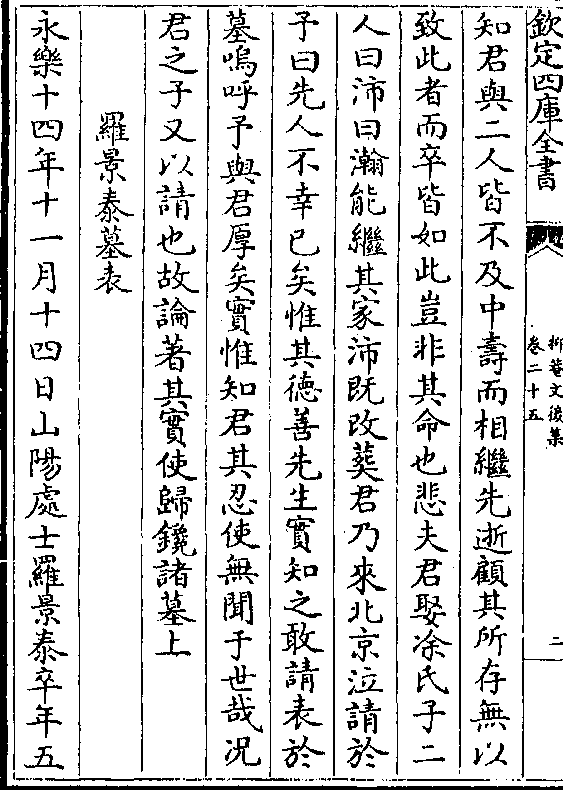 欽定四庫全書
抑菴文後集
卷二十五
二
知君與二人皆不及中壽而相繼先逝顧其所存無以
致此者而卒皆如此豈非其命也悲夫君娶凃氏子二
人曰沛曰瀚能繼其家沛既改葬君乃來北京泣請於
予曰先人不幸已矣惟其德善先生實知之敢請表於
墓嗚呼予與君厚矣實惟知君其忍使無聞于世哉况
君之子又以請也故論著其實使歸鑱諸墓上
羅景泰墓表
永樂十四年十一月十四日山陽處士羅景泰卒年五